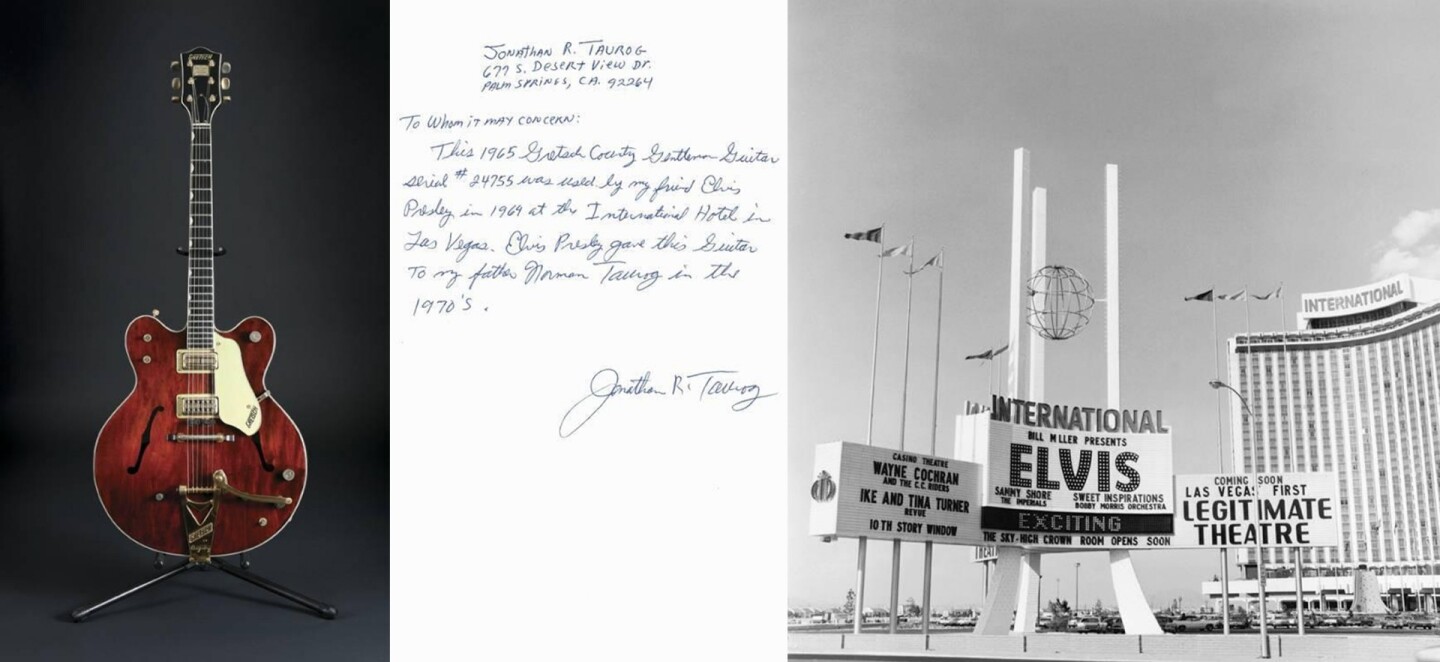 GRETSCH
GRETSCH
GRETSCH
JONATHAN R. TAUROG
677 S. DESERT VIEW DR.
PALM SPRINGS, CA. 92264
TO Whom iT MAY CONCERN:
This 1965 Gretsch Country Gentleman Guitar
serial #24755 was used by my friend Elvis
Presley in 1969 at the International Hotel in
Las Vegas. Elvis Presley gave this Guitar
To my father Norman Taurog in the
1970's.
Jonathan R. Taurog
INTERNATIONAL
INTERNATIONAL
BILL MILLER PRESENTS
ELVIS
SAMMY SHORE SWEET INSPIRATIONS
THE IMPERIALS BOBBY MORRIS ORCHESTRA
EXCITING
THE SKY-HIGH CROWN ROOM OPENS SOON
CASINO THEATRE
WAYNE COCHRAN
AND THE C.C. RIDERS
IKE AND TINA TURNER
REVUE
10TH STORY WINDOW
COMING SOON
LAS VEGAS' FIRST
LEGITIMATE
THEATRE